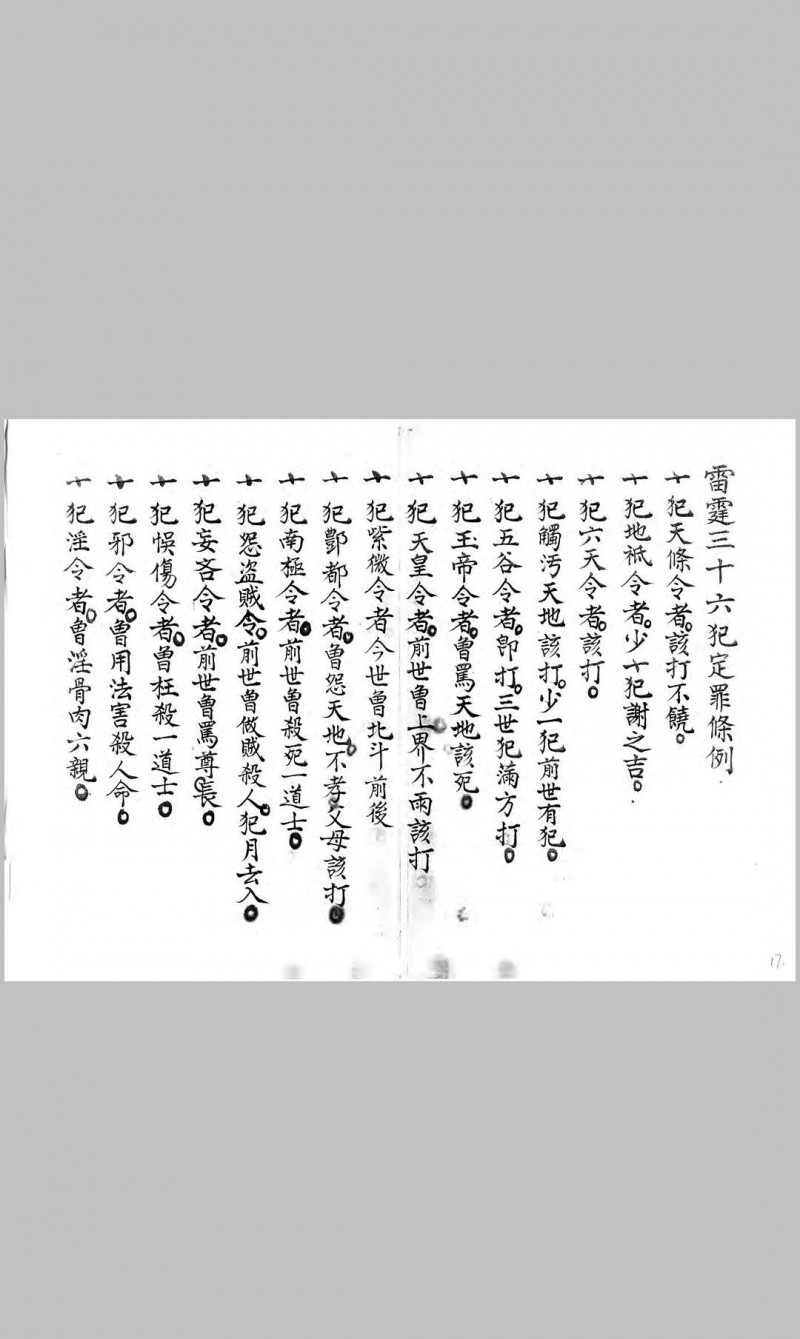 雷霆三十六犯定罪條例
十犯天條令者。該打不饒。
十犯地祇令者。少十犯謝之吉。
十犯六天令者。該打。
十犯觸汚天地該打。少一犯前世有犯。
十犯五谷令者。卽打。三世犯滿方打。
十犯玉帝令者。曾罵天地該死。
十犯天皇令者。前世曾上界不雨該打
十犯紫微令者今世曾北斗前後
十犯酆都令者。曾怨天地。不孝父母該打。
十犯南極令者。前世曾殺死一道士。
十犯怨盜賊令。前世曾做賊殺人。犯月去入。
十犯妄吝令者。前世曾罵尊長。
十犯悞傷令者。曾枉殺一道士。
十犯邪令者。曾用法害殺人命。
十犯淫令者。曾淫骨肉六親。
17.